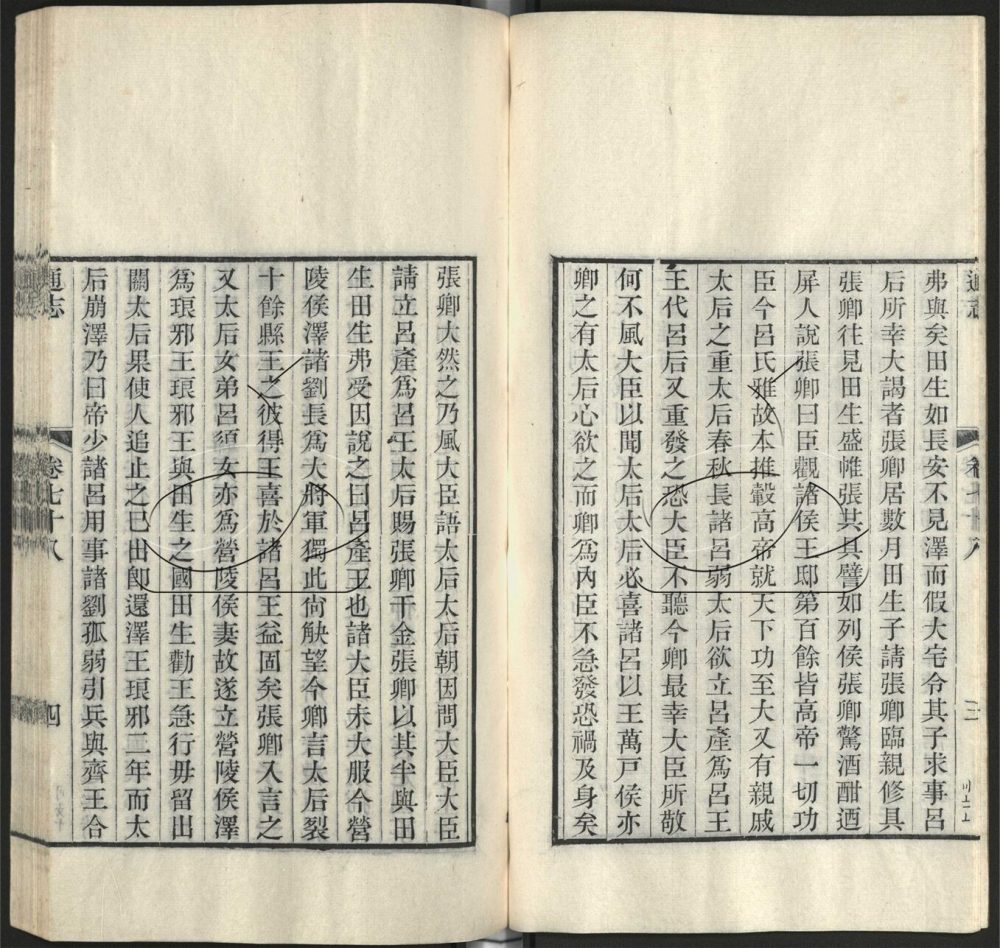 弗與矣田生如長安不見澤而假大宅令其子求事呂
后所幸大謁者張卿居數月田生子請張卿臨親修具
張卿往見田生盛帷張其具譬如列侯張卿驚酒酣迺
屏人說張卿曰臣觀諸侯王邸第百餘皆高帝一切功
臣今呂氏雅故本推轂高帝就天下功至大又有親戚
太后之重太后春秋長諸呂弱太后欲立呂產爲呂王
王代呂后又重發之恐大臣不聽今卿最幸大臣所敬
何不風大臣以聞太后太后必喜諸呂以王萬戸侯亦
卿之有太后心欲之而卿爲內臣不急發恐禍及身矣
張卿大然之乃風大臣語太后太后朝因問大臣大臣
請立呂產爲呂王太后賜張卿千金張卿以其半與田
生田生弗受因說之曰呂產王也諸大臣未大服今營
陵侯澤諸劉長爲大將軍獨此尙觖望今卿言太后裂
十餘縣王之彼得王喜於諸呂王益固矣張卿入言之
又太后女弟呂須女亦爲營陵侯妻故遂立營陵侯澤
爲琅邪王琅邪王與田生之國田生勸王急行毋留出
關太后果使人追止之已出卽還澤王琅邪二年而太
后崩澤乃曰帝少諸呂用事諸劉孤弱引兵與齊王合
通志
卷七十八
四